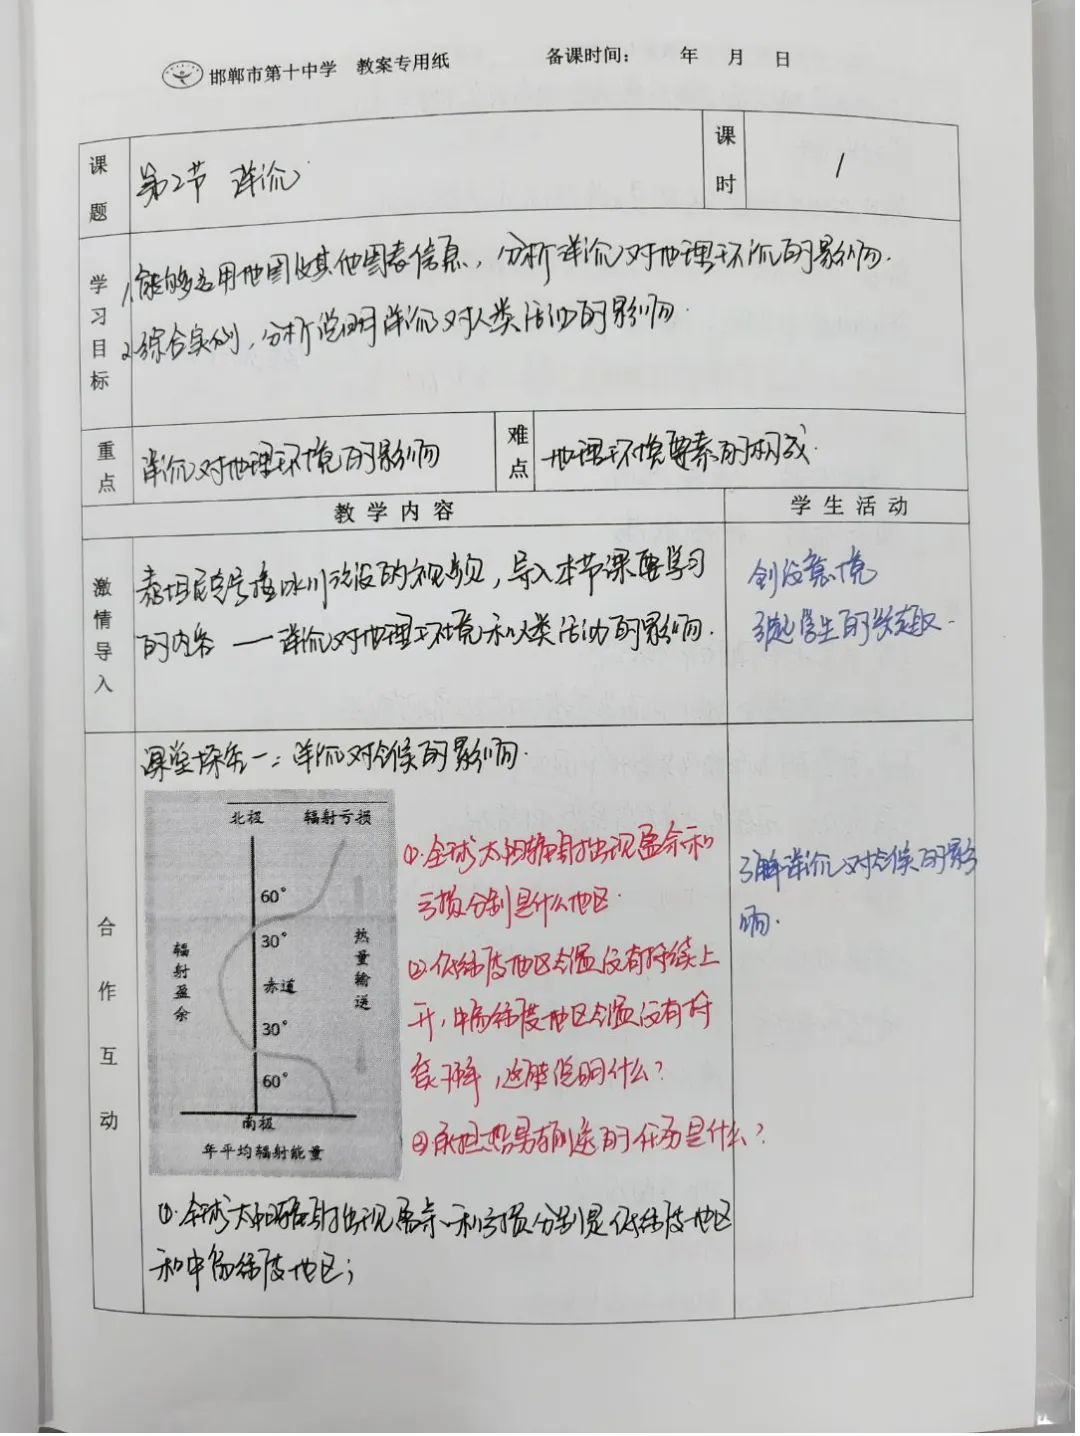 邯郸市第十中学 教案专用纸 备课时间： 年 月 日
课题
第2节 洋流
课时
1
学习目标
1.能够运用地图及其他图表信息，分析洋流对地理环境的影响.
2.综合实例，分析说明洋流对人类活动的影响.
重点
洋流对地理环境的影响
难点
地理环境要素的构成.
教学内容
学生活动
激情导入
泰坦尼克号撞冰川沉没的视频，导入本节课要学习
的内容——洋流对地理环境和人类活动的影响.
创设意境
引起学生的兴趣.
合作互动
课堂探究一：洋流对气候的影响.
北极 辐射亏损
60°
30°
赤道
30°
60°
南极
辐射盈余
热量输送
年平均辐射能量
①.全球太阳辐射出现盈余和
亏损分别是什么地区.
②.低纬度地区气温没有持续上
升，中高纬度地区气温没有持
续下降，这能说明什么？
③承担热量输送的任务是什么？
了解洋流对气候的影
响.
①.全球太阳辐射出现盈余和亏损分别是低纬度地区
和中高纬度地区；